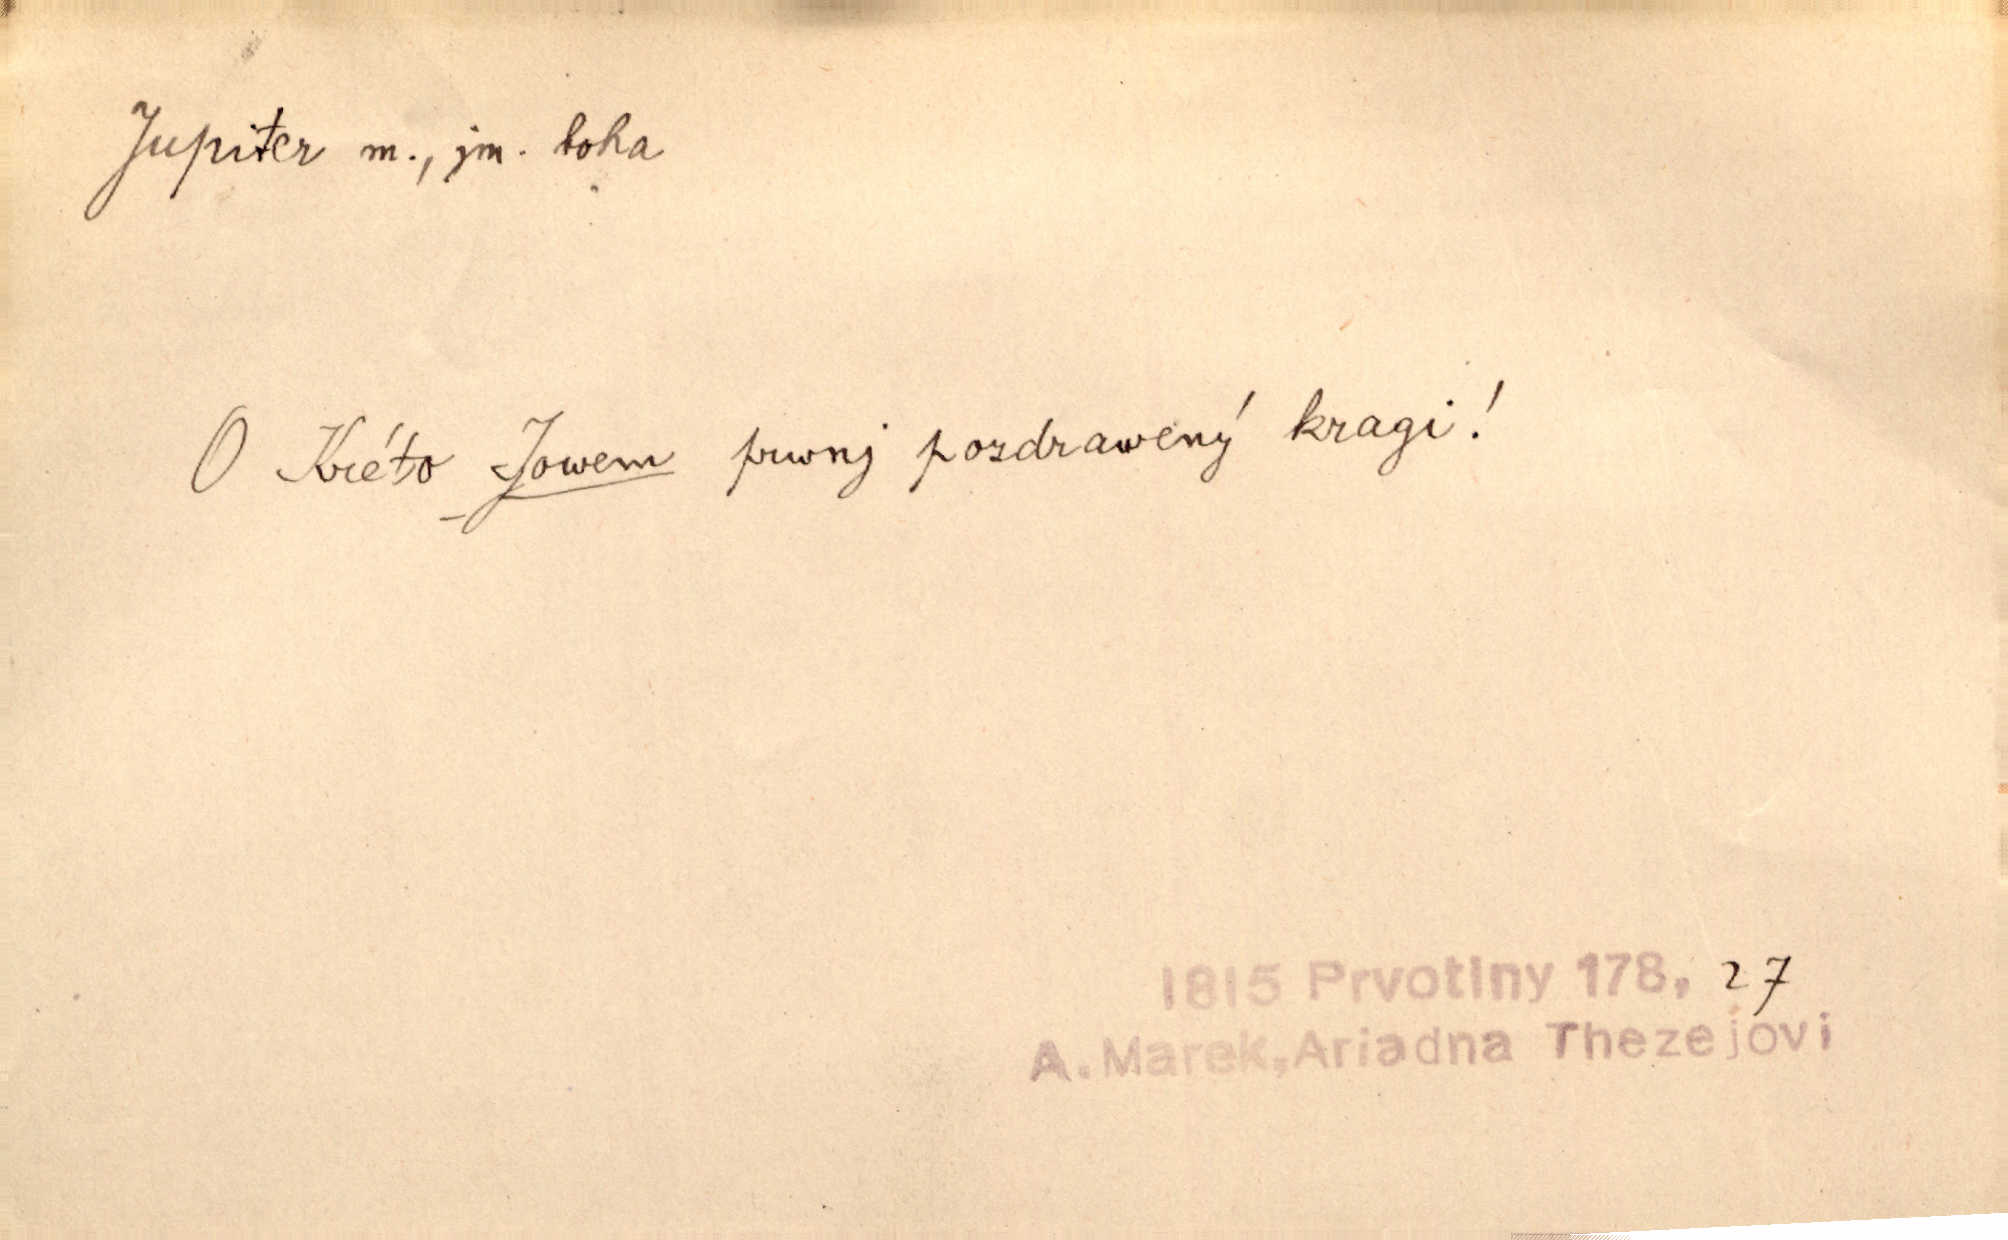 Jupiter m., jm. boha
O Kréto Jowem prwnj pozdrawený kragi!
1815 Prvotiny 178, 27
A. Marek, Ariadna Thezejovi